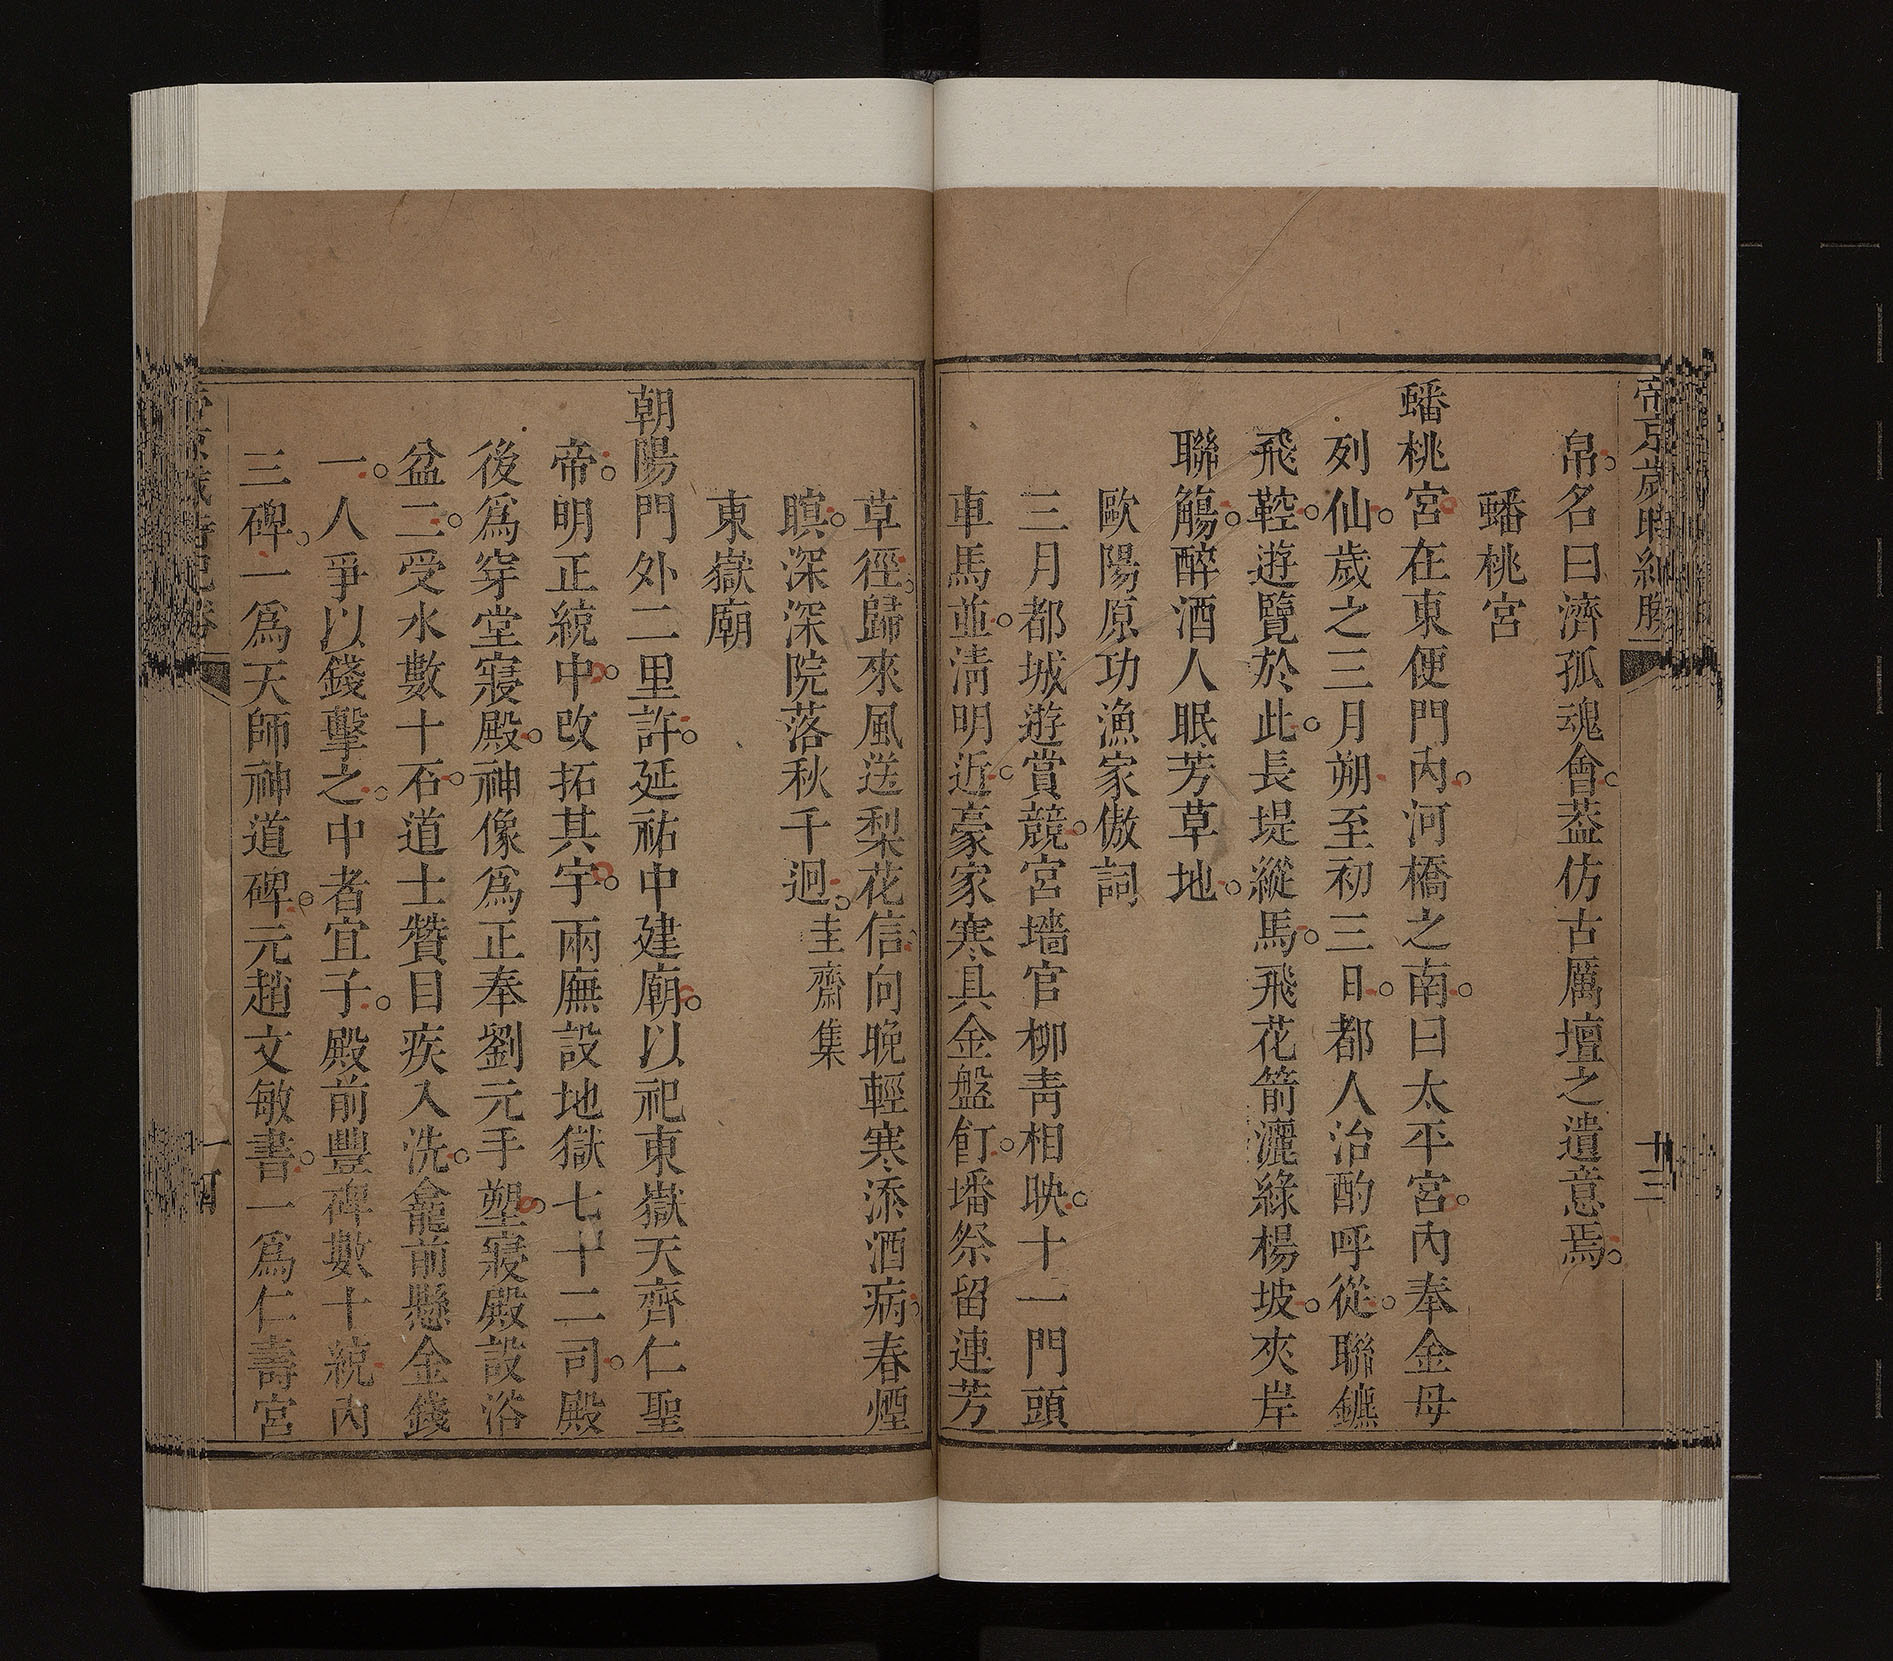 帝京歲時紀勝
廿三
帛名曰濟孤魂會葢仿古厲壇之遺意焉
蟠桃宮
蟠桃宮在東便門內河橋之南曰太平宮內奉金母
列仙歲之三月朔至初三日都人治酌呼從聯鑣
飛鞚遊覽於此長堤縱馬飛花箭灑綠楊坡夾岸
聯觴醉酒人眠芳草地
歐陽原功漁家傲詞
三月都城遊賞競宮墻官柳青相映十一門頭
車馬並淸明近豪家寒具金盤飣墦祭留連芳
草徑歸來風送梨花信向晚輕寒添酒病春煙
暝深深院落秋千迥圭齋集
東嶽廟
朝陽門外二里許延祐中建廟以祀東嶽天齊仁聖
帝明正統中改拓其宇兩廡設地獄七十二司殿
後爲穿堂寢殿神像爲正奉劉元手塑寢殿設浴
盆二受水數十石道士贊目疾入洗龕前懸金錢
一人爭以錢擊之中者宜子殿前豐碑數十統內
三碑一爲天師神道碑元趙文敏書一爲仁壽宮